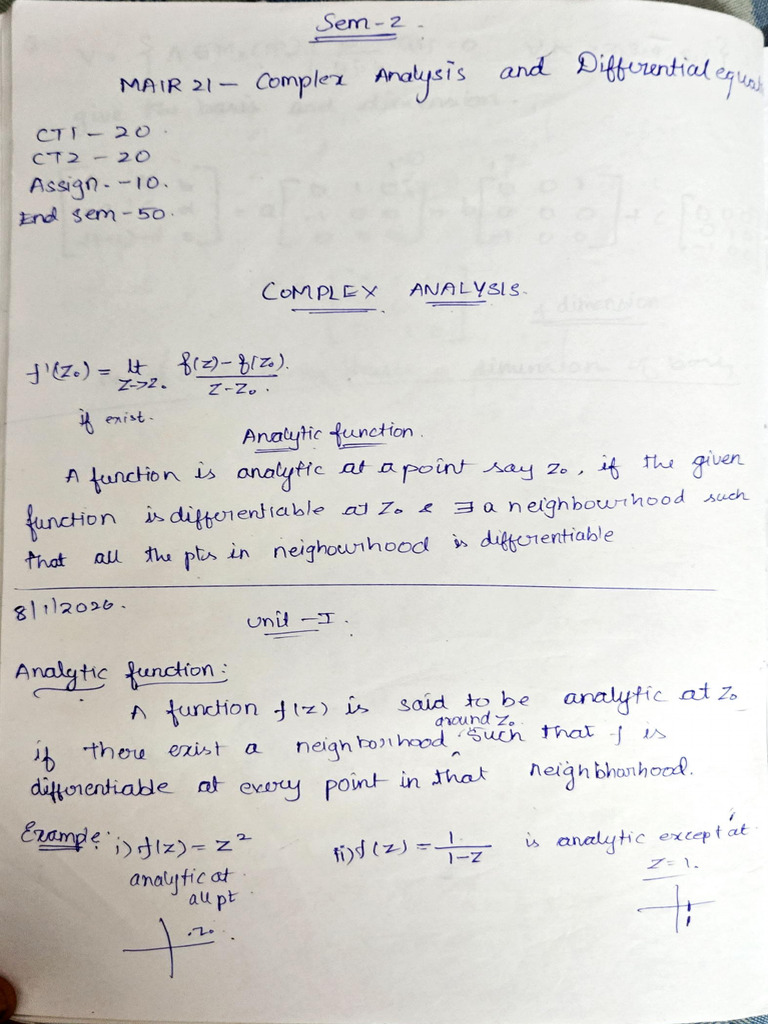 Sem-2.
MAIR 21 - Complex Analysis and Differential equa
CT1 - 20.
CT2 - 20
Assign. -10.
End sem -50.
COMPLEX ANALYSIS.
f'(z₀) = lt z->z₀ f(z)-f(z₀). / z-z₀.
if exist.
Analytic function.
A function is analytic at a point say z₀, if the given
function is differentiable at z₀ & ∃ a neighbourhood such
that all the pts in neighourhood is differentiable
8/1/2026.
Unit - I.
Analytic function:
A function f(z) is said to be analytic at z₀
if there exist a neighborhood around z₀. such that f is
differentiable at every point in that neighbharhood.
Example: i) f(z) = z² ii) f(z) = 1 / 1-z is analytic except at
analytic at z=1.
all pt
.z₀.
1